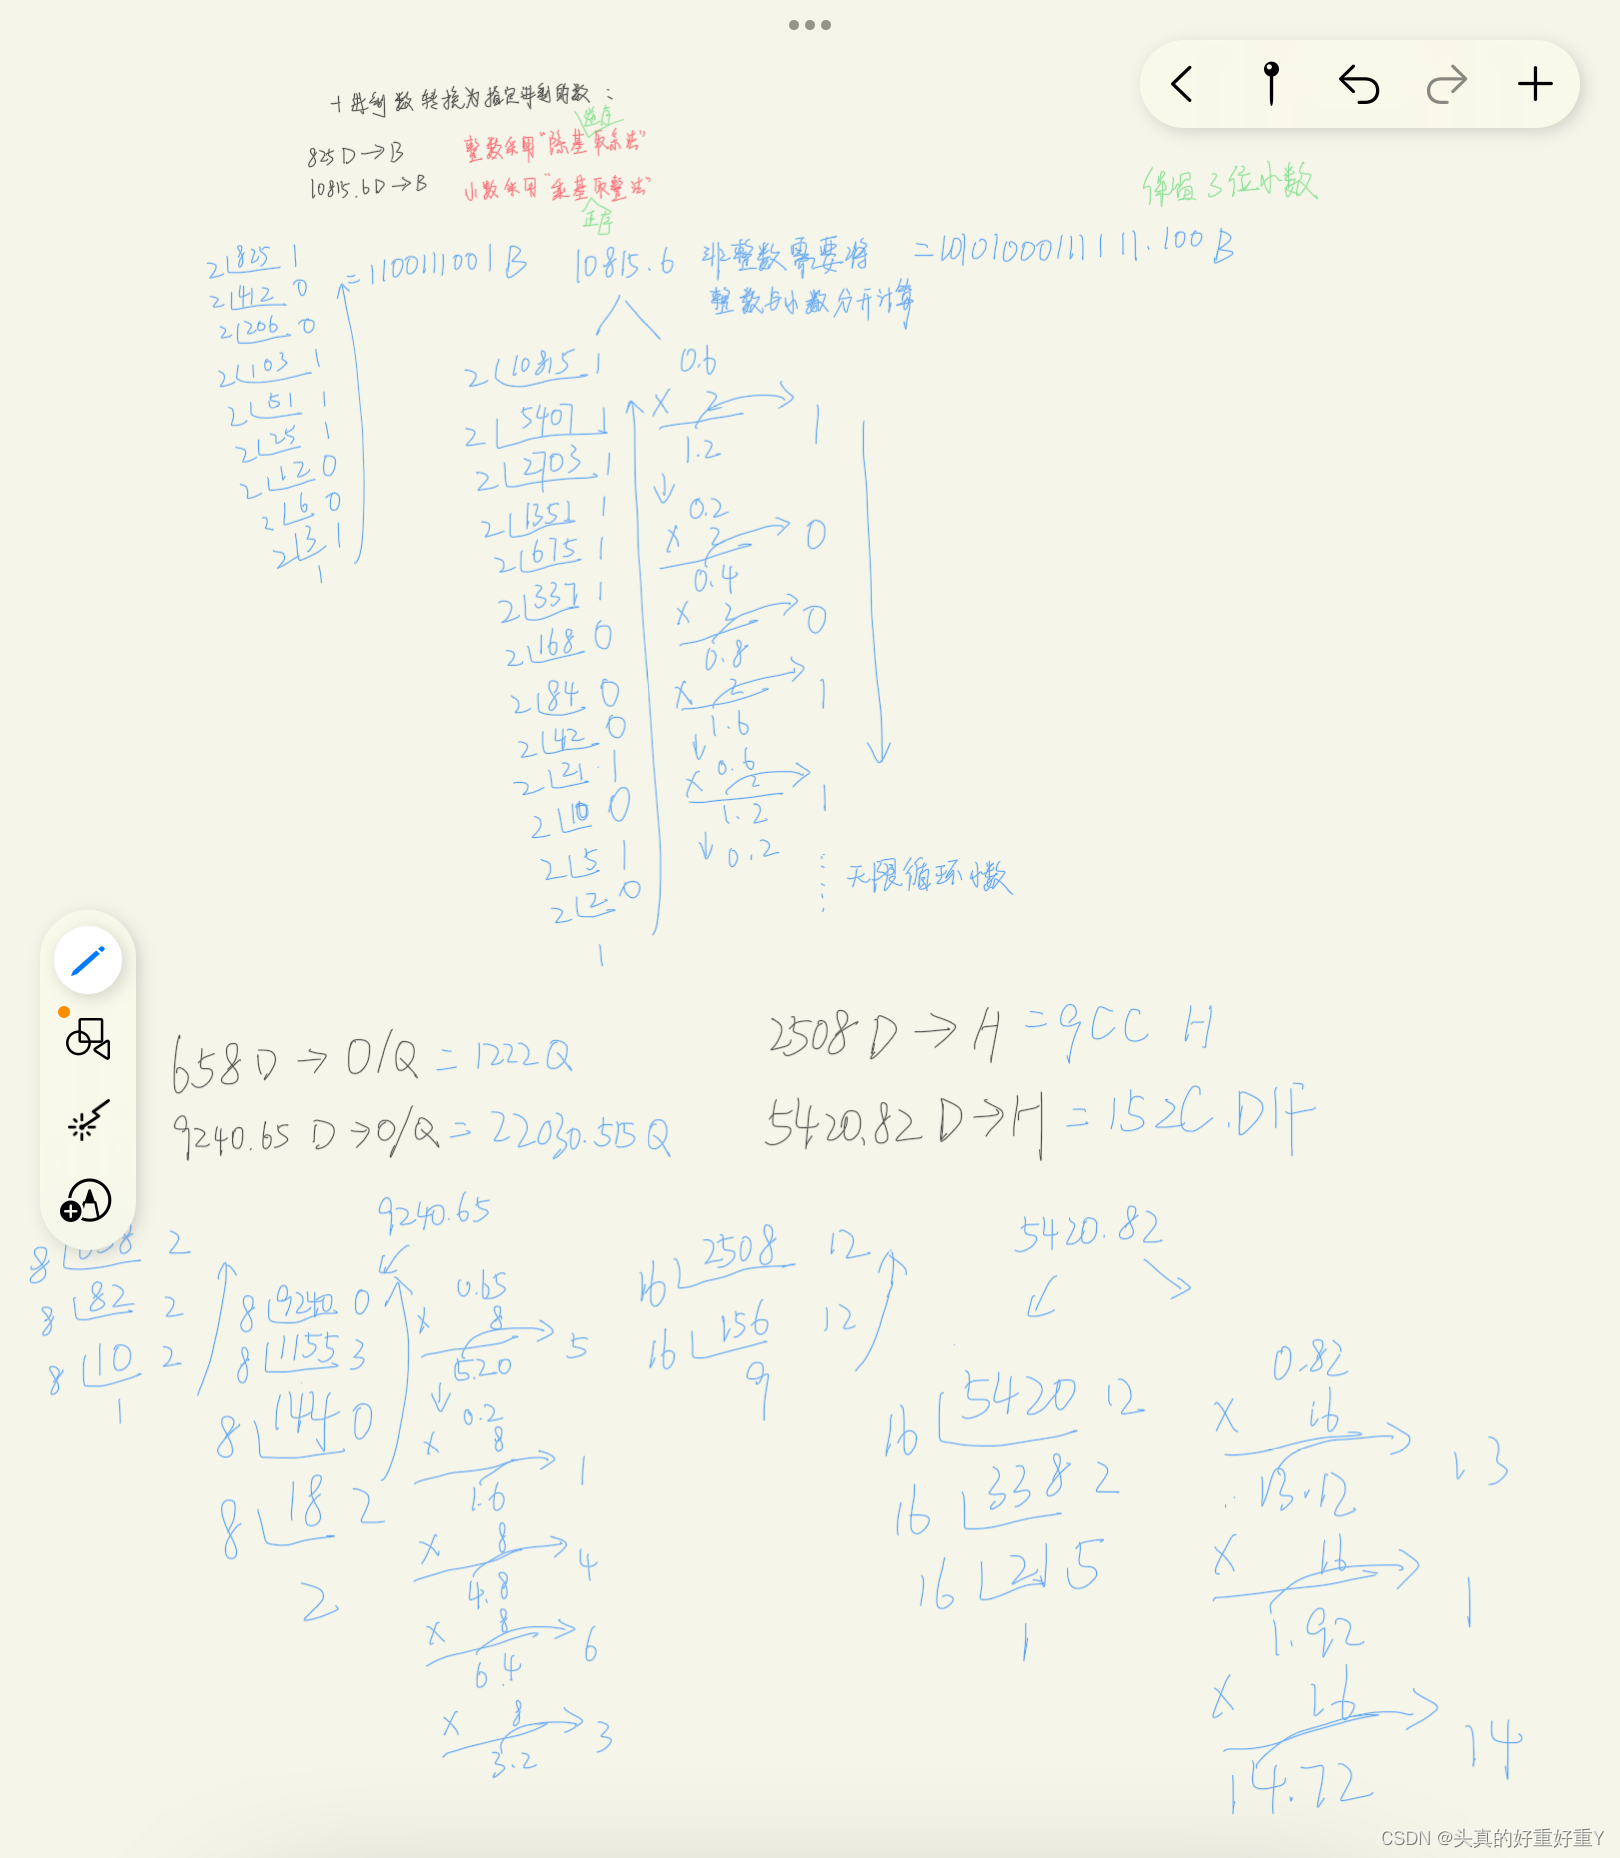 十进制数转换为指定进制的数：
逆序
825 D → B 整数采用"除基取余法"
10815.6D → B 小数采用"乘基取整法"
正序
保留3位小数
2 825 1 = 1100111001 B
2 412 0
2 206 0
2 103 1
2 51 1
2 25 1
2 12 0
2 6 0
2 3 1
1
10815.6 非整数需要将 = 10101000111111.100 B
整数与小数分开计算
2 10815 1
2 5407 1
2 2703 1
2 1351 1
2 675 1
2 337 1
2 168 0
2 84 0
2 42 0
2 21 1
2 10 0
2 5 1
2 2 0
1
0.6
× 2 1
1.2
0.2
× 2 0
0.4
× 2 0
0.8
× 2 1
1.6
0.6
× 2 1
1.2
0.2
无限循环小数
658 D → O/Q = 1222Q
9240.65 D → O/Q = 22030.515Q
2508 D → H = 9CC H
5420.82 D → H = 152C.D1F
8 2
8 82 2
8 10 2
1
9240.65
8 9240 0
8 1155 3
8 144 0
8 18 2
2
0.65
× 8 5
5.20
0.2
× 8 1
1.6
× 8 4
4.8
× 8 6
6.4
× 8 3
3.2
16 2508 12
16 156 12
9
5420.82
16 5420 12
16 338 2
16 21 5
1
0.82
× 16 13
13.12
× 16 1
1.92
× 16 14
14.72
CSDN @头真的好重好重Y